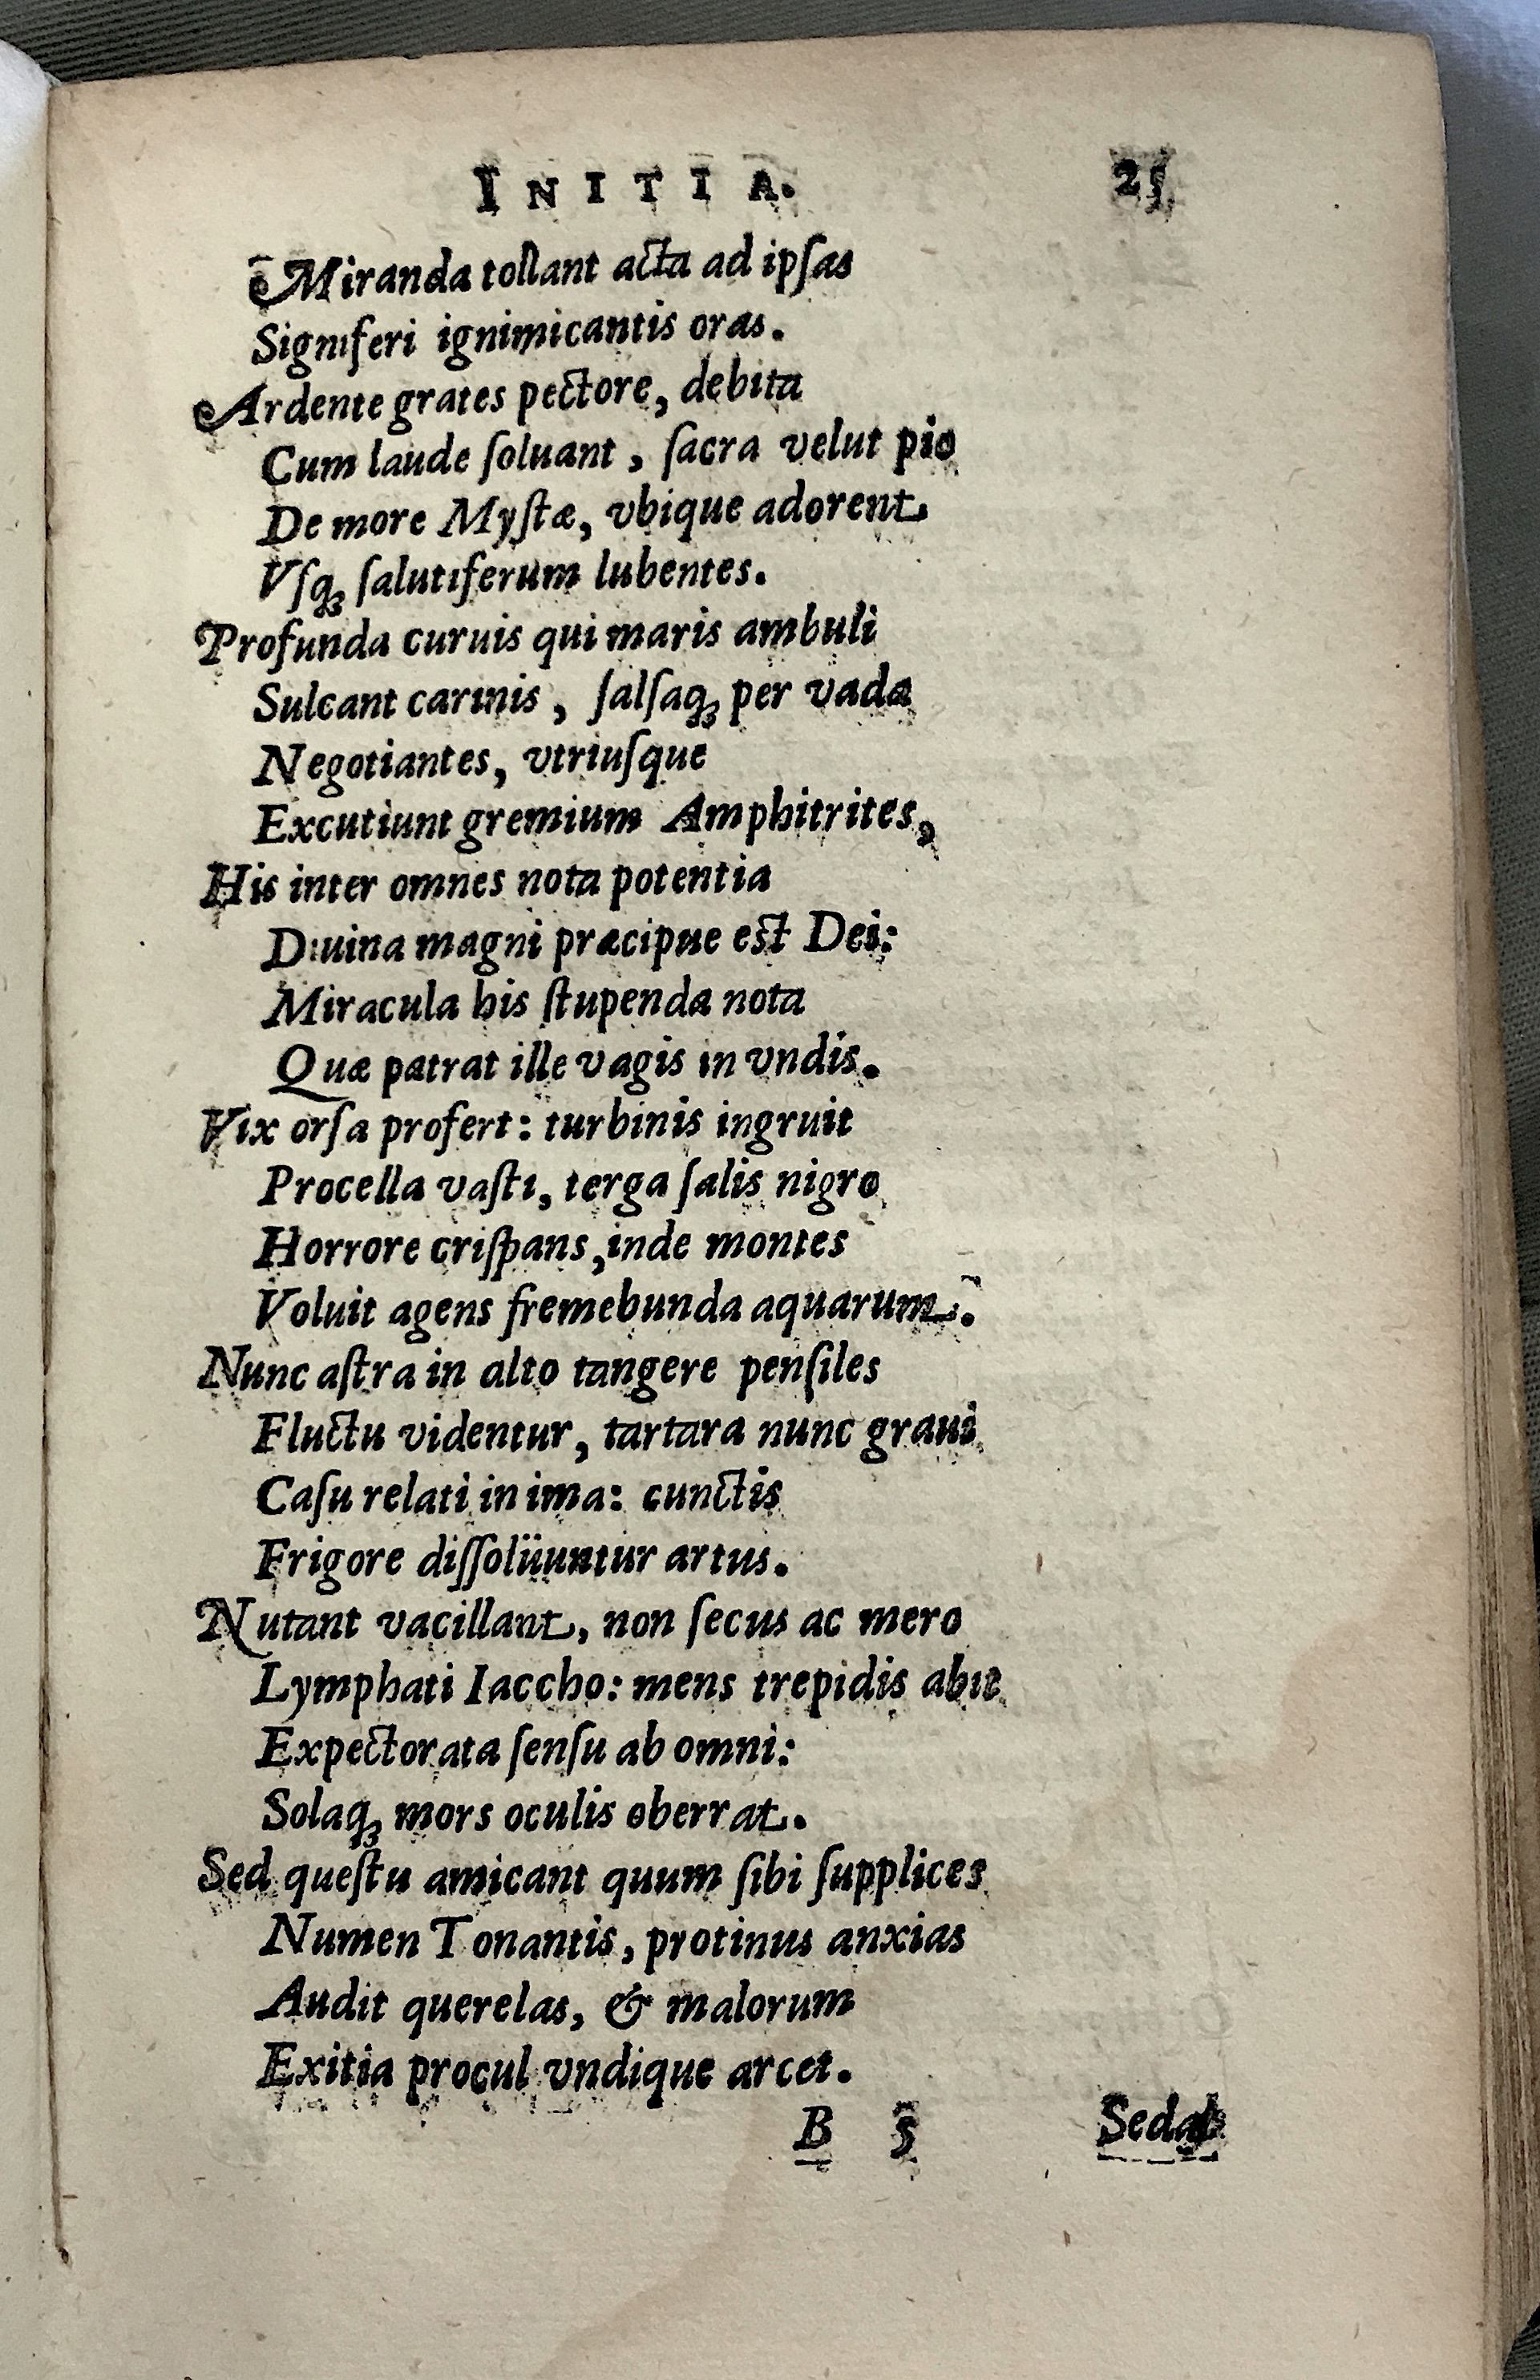 INITIA. 25
Miranda tollant acta ad ipſas
Signiferi ignimicantis oras.
Ardente grates pectore, debita
Cum laude ſoluant, ſacra velut pio
De more Myſtæ, vbique adorent
Vſqꝫ ſalutiferum lubentes.
Profunda curuis qui maris ambuli
Sulcant carinis, ſalſaqꝫ per vada
Negotiantes, vtriuſque
Excutiunt gremium Amphitrites,
His inter omnes nota potentia
Diuina magni præcipue eſt Dei:
Miracula his ſtupenda nota
Quæ patrat ille vagis in vndis.
Vix orſa profert: turbinis ingruit
Procella vaſti, terga ſalis nigro
Horrore criſpans, inde montes
Voluit agens fremebunda aquarum.
Nunc aſtra in alto tangere penſiles
Fluctu videntur, tartara nunc graui
Caſu relati in ima: cunctis
Frigore diſſolüuntur artus.
Nutant vacillant, non ſecus ac mero
Lymphati Iaccho: mens trepidis abit
Expectorata ſenſu ab omni:
Solaqꝫ mors oculis oberrat.
Sed queſtu amicant quum ſibi ſupplices
Numen Tonantis, protinus anxias
Audit querelas, & malorum
Exitia procul vndique arcet.
B 5 Sedab